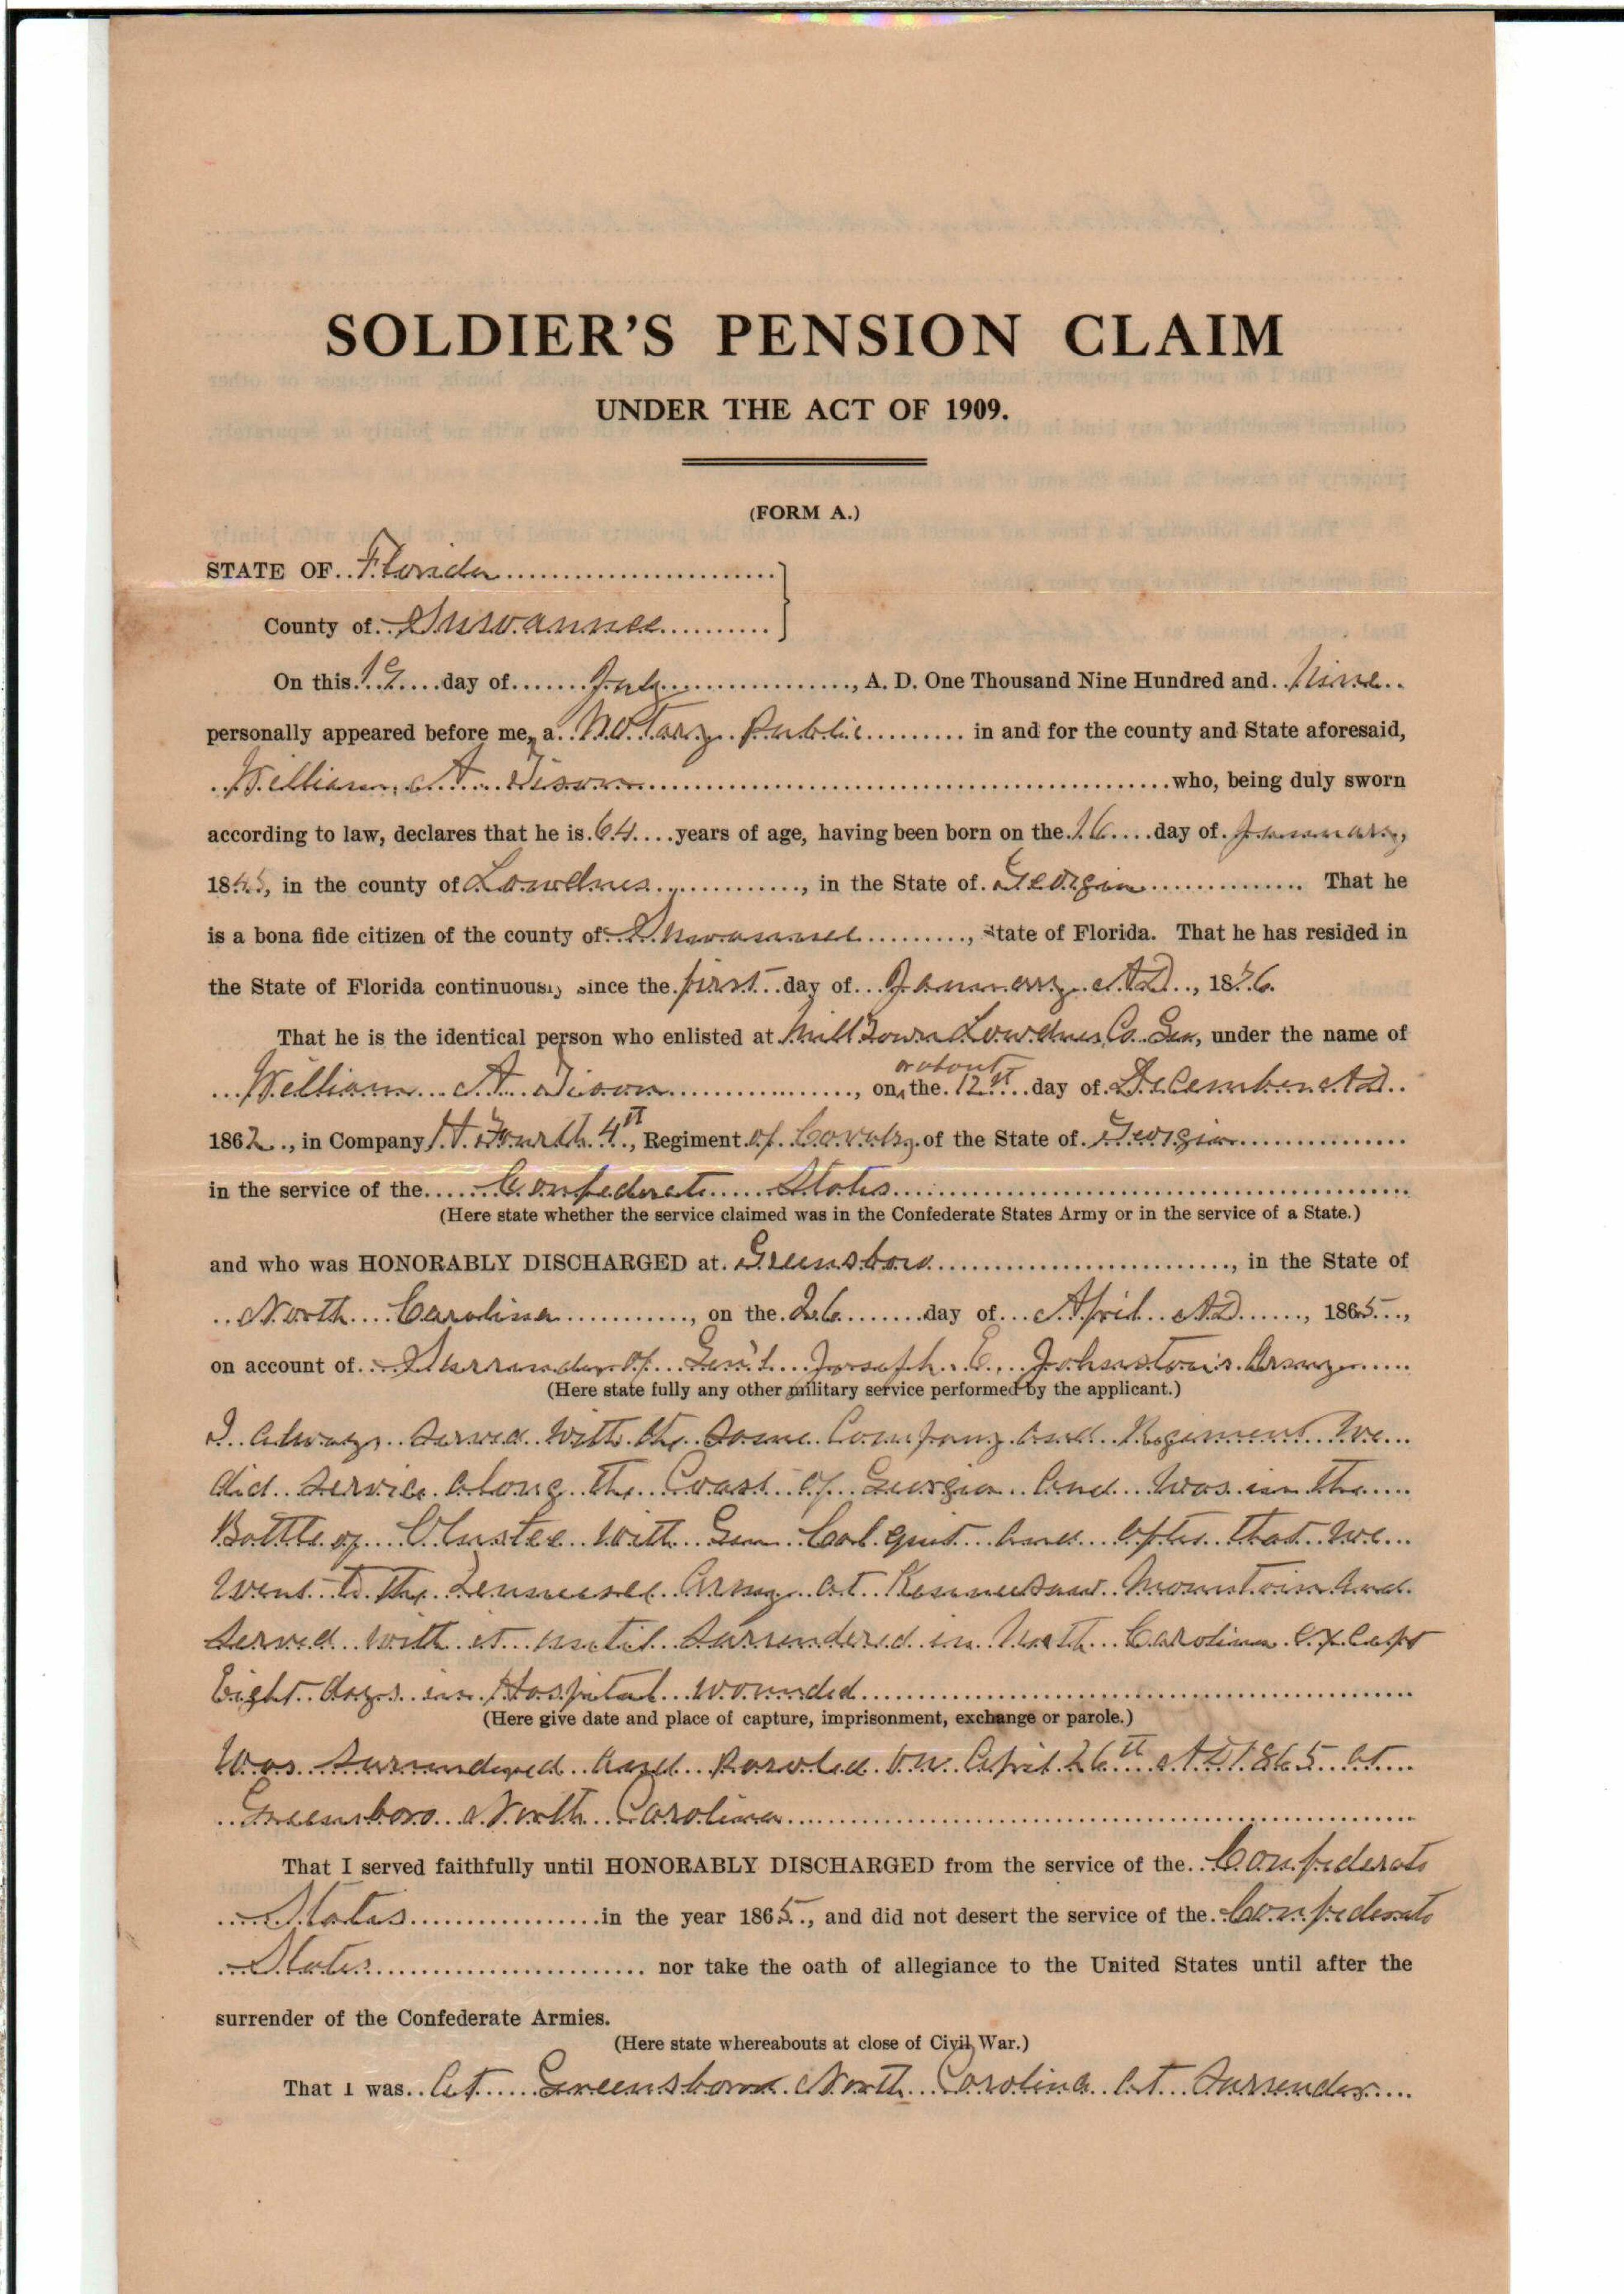 SOLDIER'S PENSION CLAIM
UNDER THE ACT OF 1909.
(FORM A.)
STATE OF Florida
County of Suwannee
On this 19 day of July, A. D. One Thousand Nine Hundred and Nine
personally appeared before me, a Notary Public in and for the county and State aforesaid,
William A Tison who, being duly sworn
according to law, declares that he is 64 years of age, having been born on the 16 day of January,
1845, in the county of Lowdnes, in the State of Georgia That he
is a bona fide citizen of the county of Suwannee, State of Florida. That he has resided in
the State of Florida continuously since the first day of January A.D., 1876
That he is the identical person who enlisted at Mill Town Lowdnes Co. Ga, under the name of
or about
William A Tison, on the 12th day of December A.D.
1862, in Company H. Fourth 4th, Regiment of Cavalry of the State of Georgia
in the service of the Confederate States
(Here state whether the service claimed was in the Confederate States Army or in the service of a State.)
and who was HONORABLY DISCHARGED at Greensboro, in the State of
North Carolina, on the 26 day of April A.D., 1865,
on account of Surrender of Gen'l Joseph E. Johnston's Army
(Here state fully any other military service performed by the applicant.)
I always served with the same Company and Regiment We
did service along the Coast of Georgia and was in the
Battle of Olustee with Gen Col quit and after that we
went to the Tennessee Army at Kennesaw Mountain and
served with it until surrendered in North Carolina except
Eight days in Hospital wounded
(Here give date and place of capture, imprisonment, exchange or parole.)
Was surrendered and paroled on April 26th A.D. 1865 at
Greensboro North Carolina
That I served faithfully until HONORABLY DISCHARGED from the service of the Confederate
States in the year 1865, and did not desert the service of the Confederate
States nor take the oath of allegiance to the United States until after the
surrender of the Confederate Armies.
(Here state whereabouts at close of Civil War.)
That I was At Greensboro North Carolina at Surrender